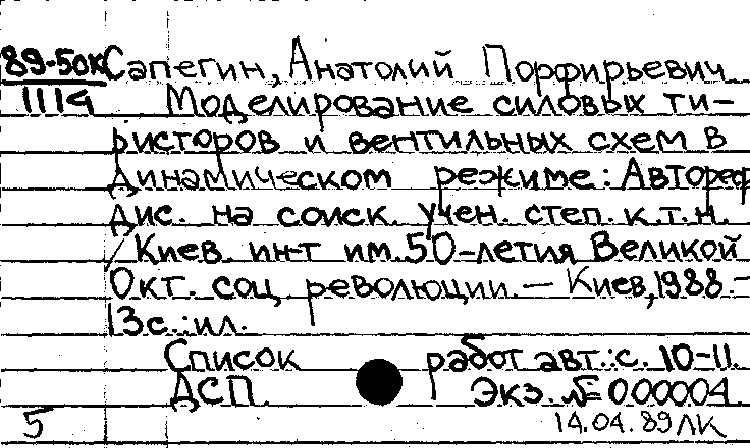 89-50к Сапегин, Анатолий Порфирьевич
1114 Моделирование силовых ти-
ристоров и вентильных схем в
динамическом режиме: Автореф
дис. на соиск. учен. степ. к.т.н.
/ Киев. ин-т им. 50-летия Великой
Окт. соц. революции. — Киев, 1988. —
13 с.: ил.
Список работ авт.: с. 10-11.
ДСП. Экз. № 000004.
5 14.04.89 ЛК